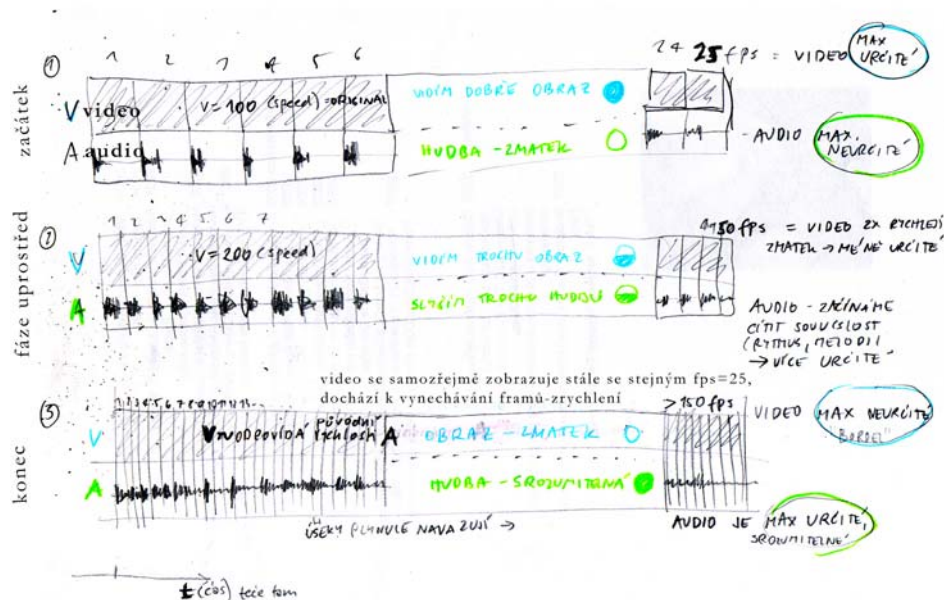 začátek
①
1 2 3 4 5 6
V video
V=100 (speed)=ORIGINÁL
VIDÍM DOBŘE OBRAZ
A audio
HUDBA - ZMATEK
24 25 fps = VIDEO MAX URČITÉ
- AUDIO MAX. NEURČITÉ
fáze uprostřed
②
1 2 3 4 5 6 7
V
V=200 (speed)
VIDÍM TROCHU OBRAZ
A
SLYŠÍM TROCHU HUDBU
50 fps = VIDEO 2X RYCHLEJŠÍ
ZMATEK → MÉNĚ URČITÉ
AUDIO - ZAČÍNÁME
CÍTIT SOUVISLOST
(RYTMUS, MELODII
→ VÍCE URČITÉ
video se samozřejmě zobrazuje stále se stejným fps=25,
dochází k vynechávání framů-zrychlení
konec
③
1 2 3 4 5 6 7 8 9 10 11 12 13 14 15...
V
ODPOVÍDÁ původní rychlosti A
OBRAZ - ZMATEK
A
HUDBA - SROZUMITELNÁ
>150 fps
VIDEO MAX NEURČITÉ
"BORDEL"
ÚSEKY PLYNULE NAVAZUJÍ →
AUDIO JE MAX URČITÉ,
SROZUMITELNÉ
t (čas) teče tam